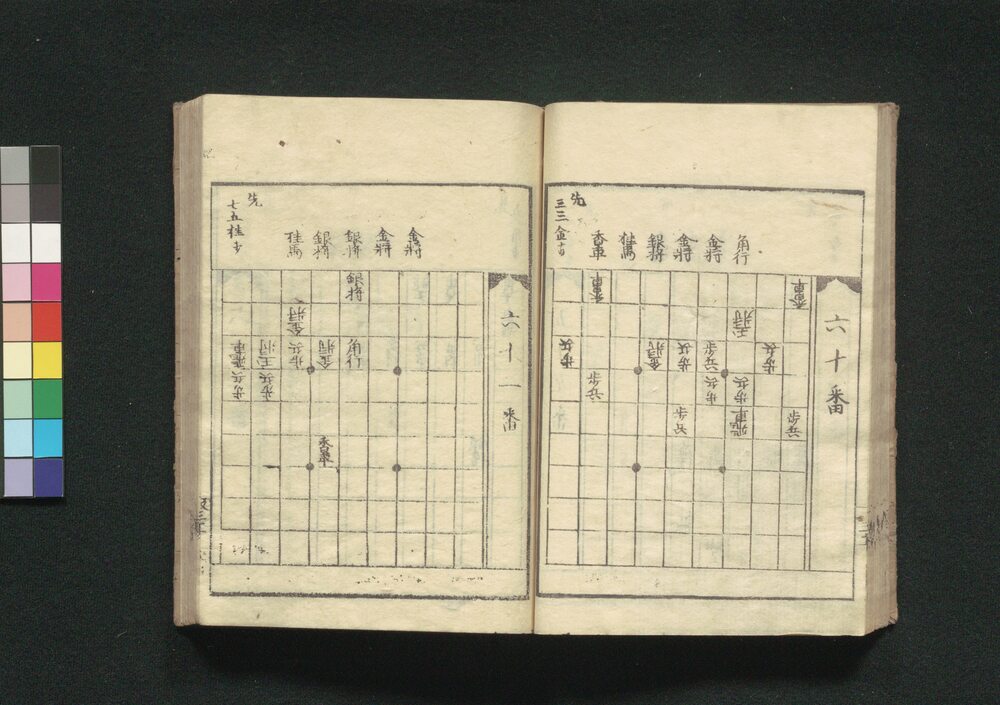 六十番
先
三三金
角行
金将
金将
銀将
桂馬
香車
香車
香車
王将
歩兵
金将
歩兵
歩兵
歩兵
歩兵
歩兵
歩兵
歩兵
飛車
歩兵
六十一番
先
七五桂
金将
金将
銀将
銀将
桂馬
銀将
金将
飛車
王将
歩兵
金将
角行
歩兵
歩兵
香車